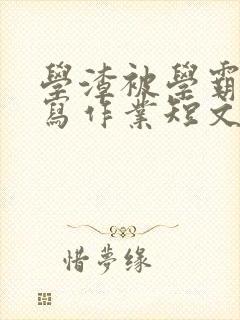 學渣被學霸
寫作業短文
惜夢緣